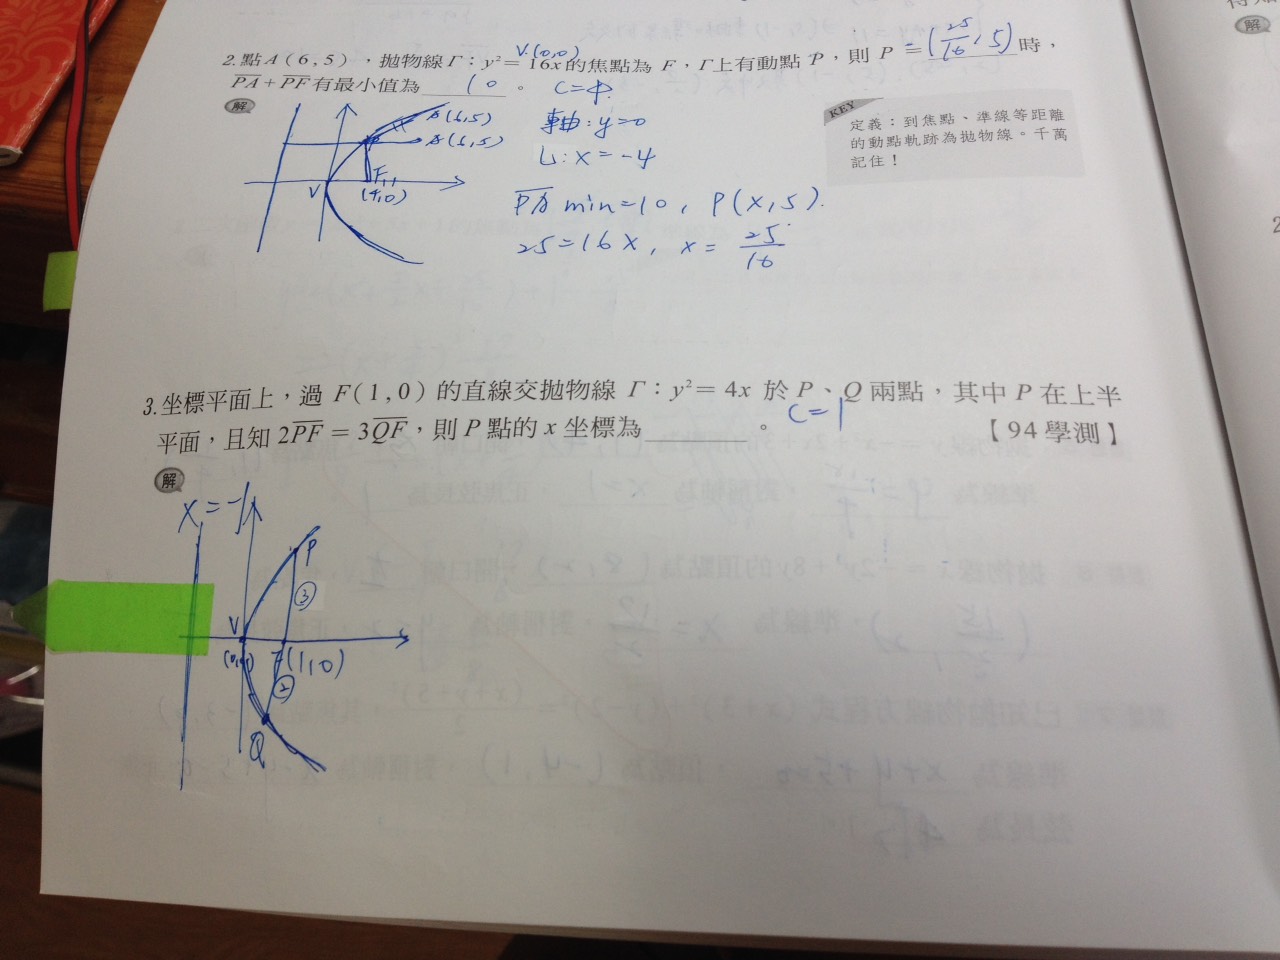 V(0,0)
2.點A(6,5),拋物線Γ:y²=16x的焦點為F,Γ上有動點P,則P=(25/16,5)時,
PA+PF有最小值為 10 。 C=4.
解
A(6,5)
A(6,5)
V
F
(4,0)
軸:y=0
L:x=-4
PA min=10, P(x,5).
25=16x, x=25/16
KEY
定義:到焦點、準線等距離
的動點軌跡為拋物線。千萬
記住!
3.坐標平面上,過F(1,0)的直線交拋物線Γ:y²=4x於P、Q兩點,其中P在上半
平面,且知2PF=3QF,則P點的x坐標為 。 C=1 【94學測】
解
x=-1
P
③
V
(0,0)
F(1,0)
②
Q
解
2